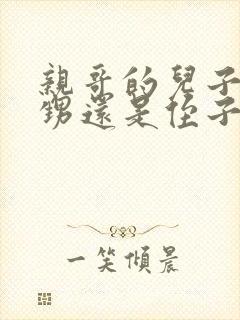 親哥的兒子
甥還是侄子
一笑傾晨